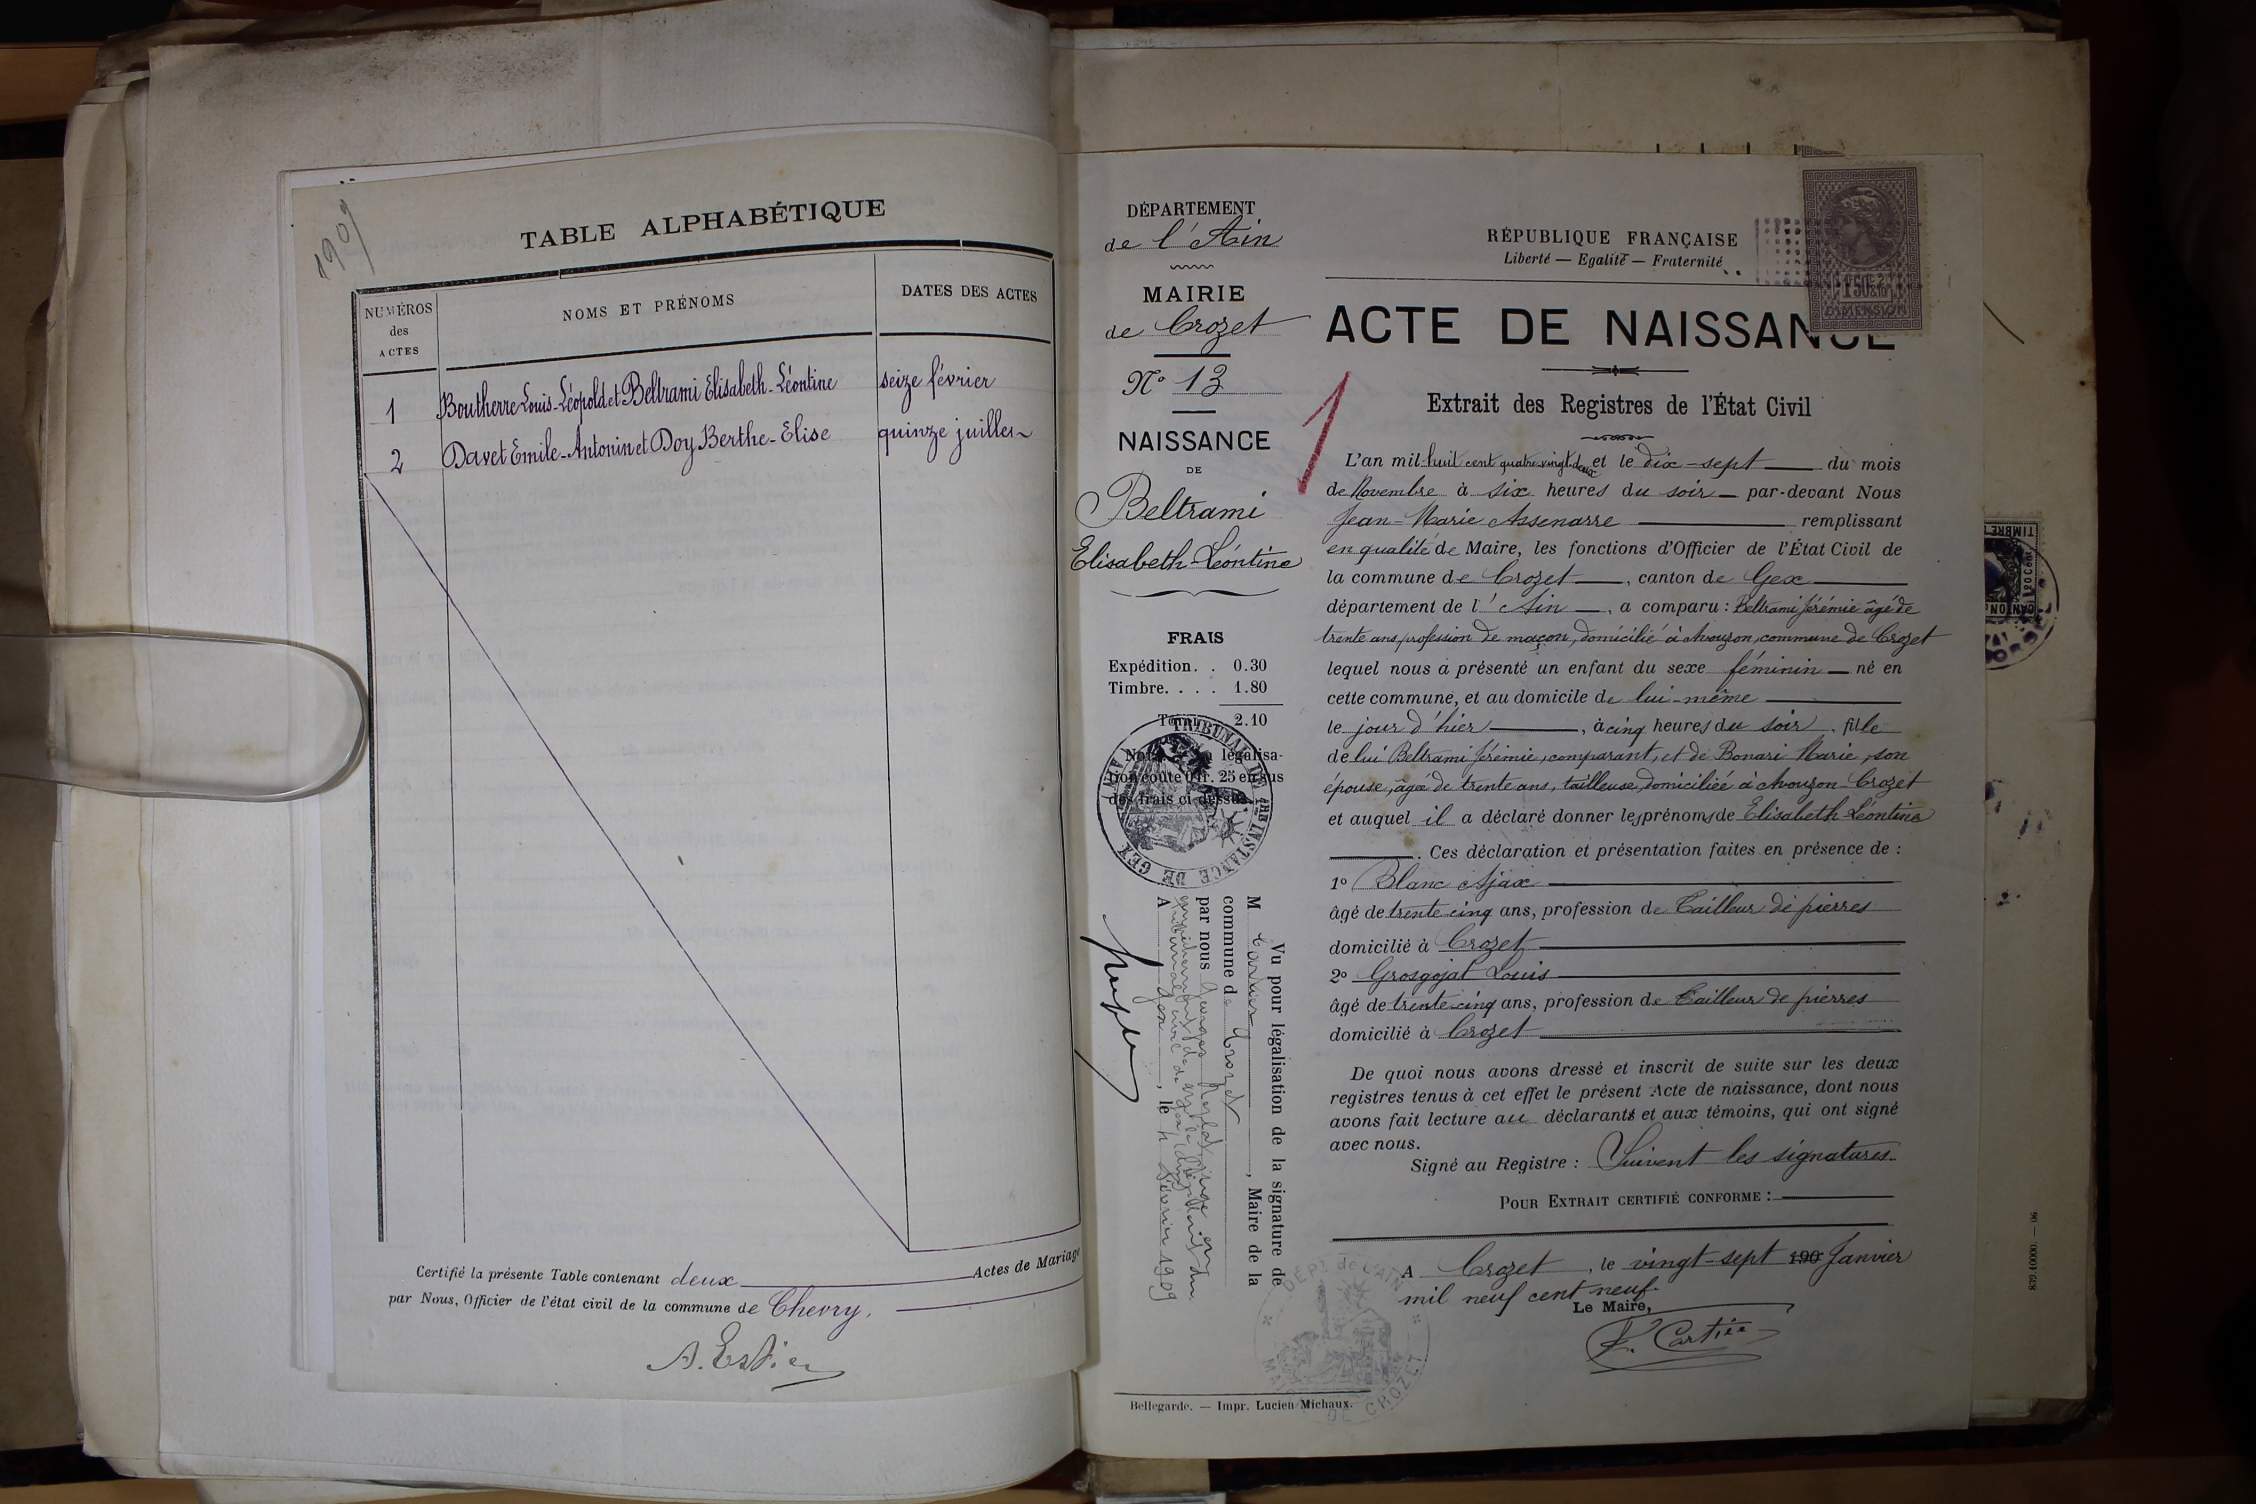 1909
TABLE ALPHABÉTIQUE
NUMÉROS
des
ACTES
NOMS ET PRÉNOMS
DATES DES ACTES
1 Boutherre Louis-Léopold et Beltrami Elisabeth-Léontine seize février
2 Davet Emile-Antonin et Doy Berthe-Elise quinze juillet
Certifié la présente Table contenant deux Actes de Mariage
par Nous, Officier de l'état civil de la commune de Chevry.
DÉPARTEMENT
de l'Ain
MAIRIE
de Crozet
N° 13
NAISSANCE
DE
Beltrami
Elisabeth-Léontine
FRAIS
Expédition. . 0.30
Timbre. . . . 1.80
Total 2.10
Nota légalisa-
tion coûte 0 fr. 25 en sus
des frais ci-dessus.
TRIBUNAL DE 1RE INSTANCE DE GEX (AIN)
Vu pour légalisation de la signature de
M Cartier, Maire de la
commune de Crozet
par nous Georges
A Gex, le février 1909
RÉPUBLIQUE FRANÇAISE
Liberté — Egalité — Fraternité
1F50c
DIMENSION
ACTE DE NAISSANCE
1
Extrait des Registres de l'État Civil
L'an mil-huit cent quatre-vingt-deux et le dix-sept du mois
de Novembre à six heures du soir par-devant Nous
Jean-Marie Assenarre remplissant
en qualité de Maire, les fonctions d'Officier de l'État Civil de
la commune de Crozet, canton de Gex
département de l'Ain, a comparu : Beltrami Jérémie âgé de
trente ans, profession de maçon, domicilié à Avouzon, commune de Crozet
lequel nous a présenté un enfant du sexe féminin né en
cette commune, et au domicile de lui-même
le jour d'hier, à cinq heures du soir, fille
de lui Beltrami Jérémie, comparant, et de Bonari Marie, son
épouse, âgée de trente ans, tailleuse, domiciliée à Avouzon-Crozet
et auquel il a déclaré donner les prénoms de Elisabeth Léontine
. Ces déclaration et présentation faites en présence de :
1° Blanc Ajax
âgé de trente cinq ans, profession de Tailleur de pierres
domicilié à Crozet
2° Grosgojat Louis
âgé de trente-cinq ans, profession de Tailleur de pierres
domicilié à Crozet
De quoi nous avons dressé et inscrit de suite sur les deux
registres tenus à cet effet le présent Acte de naissance, dont nous
avons fait lecture au déclarant et aux témoins, qui ont signé
avec nous.
Signé au Registre : Suivent les signatures.
POUR EXTRAIT CERTIFIÉ CONFORME :
A Crozet, le vingt-sept 190 Janvier
mil neuf cent neuf.
Le Maire,
F. Cartier
DÉPT de L'AIN
MAIRIE DE CROZET
Bellegarde. — Impr. Lucien Michaux.
839.10000. — 06
TIMBRE